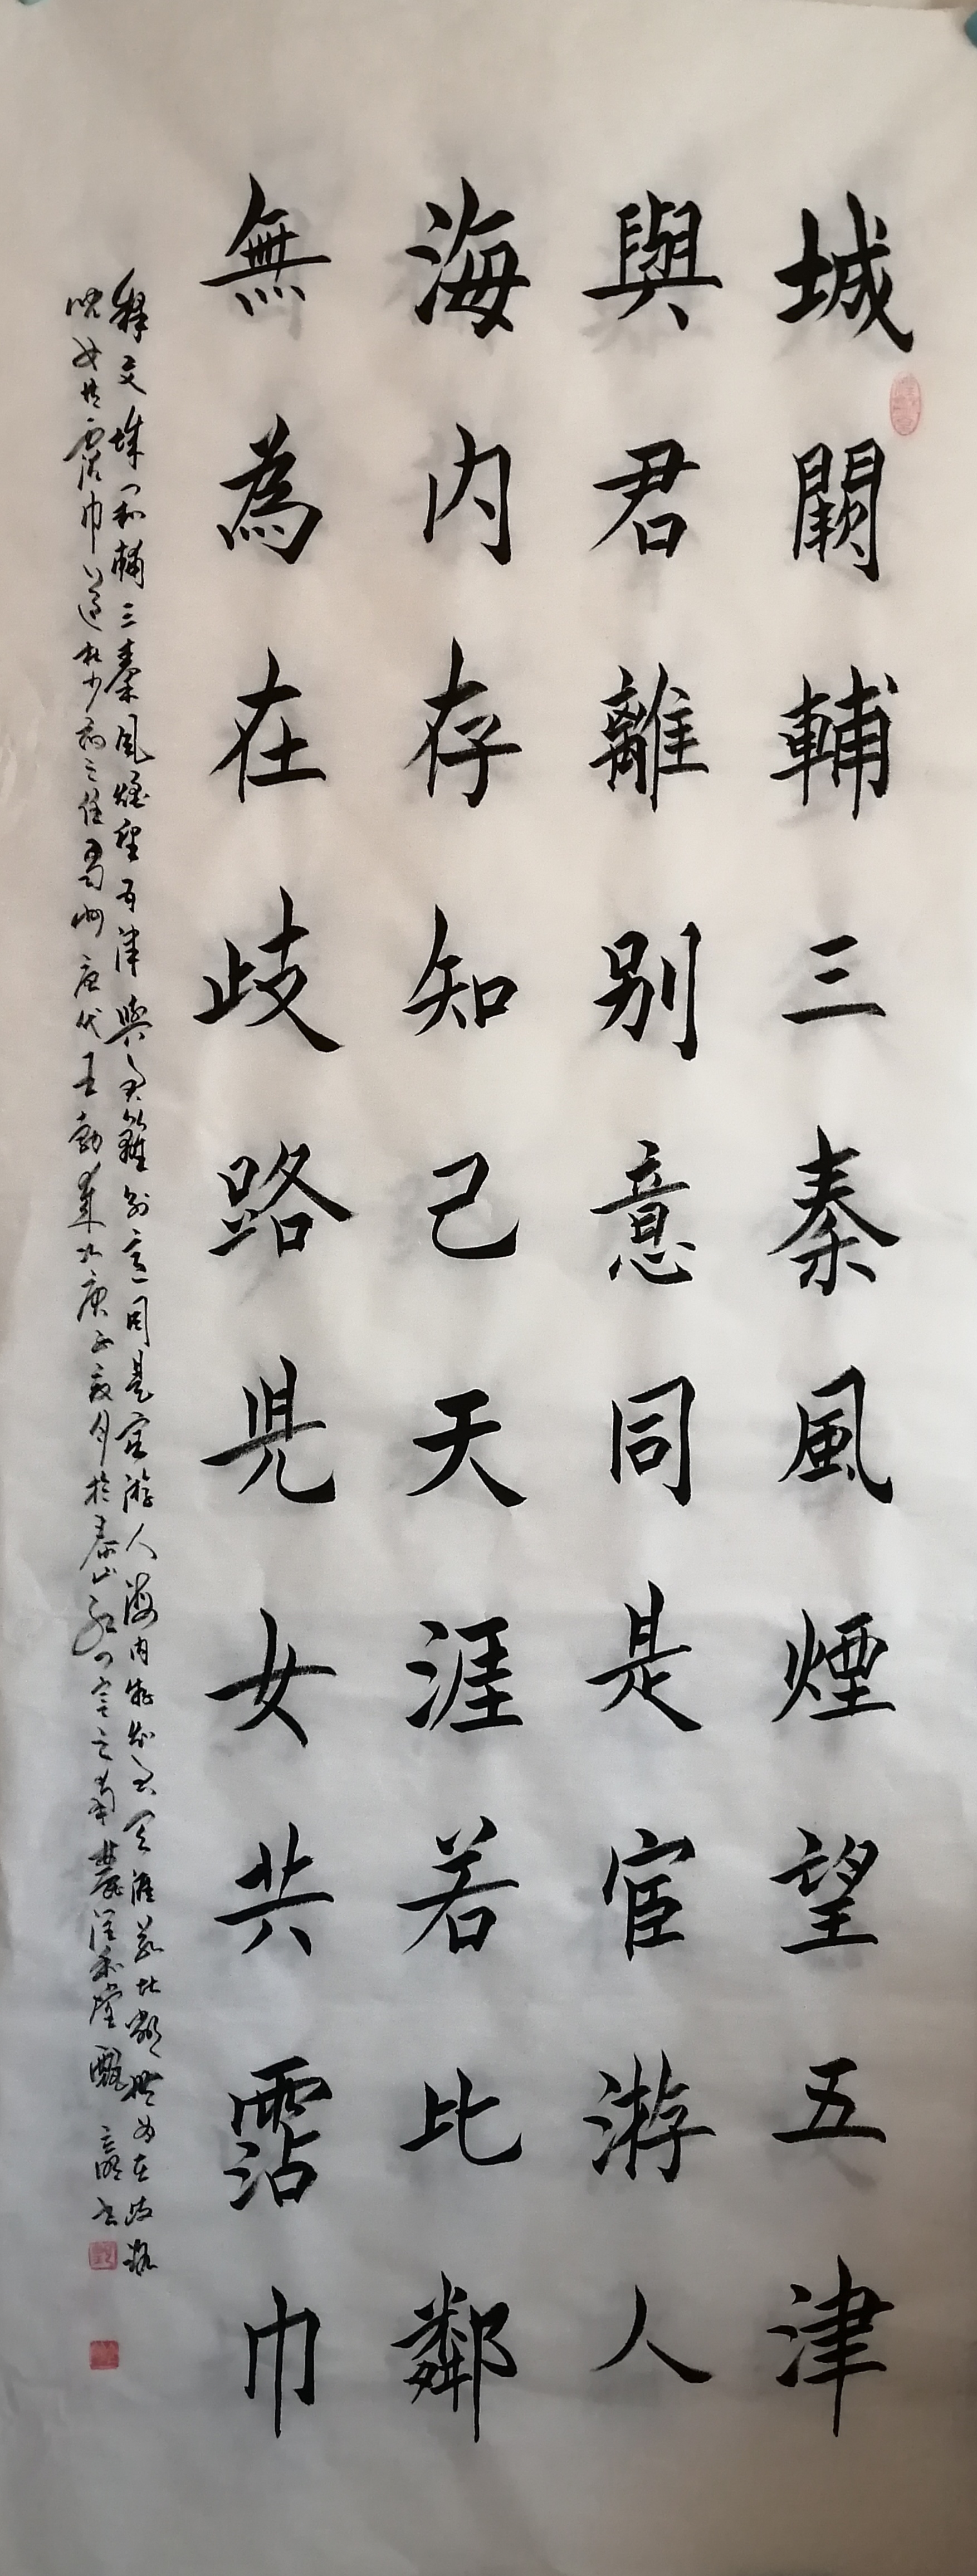 城闕輔三秦風煙望五津
與君離別意同是宦游人
海内存知己天涯若比鄰
無為在歧路兒女共霑巾
释文城闕輔三秦風煙望五津與君離别意同是宦游人海内存知己天涯若比鄰無為在歧路
兒女共霑巾送杜少府之任蜀州唐代王勃 庚子 月於泰山 之南 堂 书